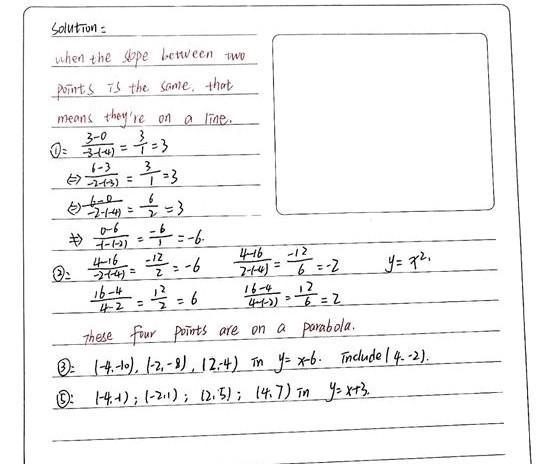 Solution:
when the slope between two
points is the same, that
means they're on a line.
①: (3-0)/(-3-(-4)) = 3/1 = 3
⇔ (6-3)/(-2-(-3)) = 3/1 = 3
⇔ (6-0)/(-2-(-4)) = 6/2 = 3
⇎ (0-6)/(-1-(-2)) = -6/1 = -6.
②: (4-16)/(-2-(-4)) = -12/2 = -6 (4-16)/(2-(-4)) = -12/6 = -2 y=x².
(16-4)/(4-2) = 12/2 = 6 (16-4)/(4-(-2)) = 12/6 = 2
These four points are on a parabola.
③: (-4,-10), (-2,-8), (2,-4) in y=x-6. include (4,-2).
⑤: (-4,-1); (-2,1); (2,5); (4,7) in y=x+3.